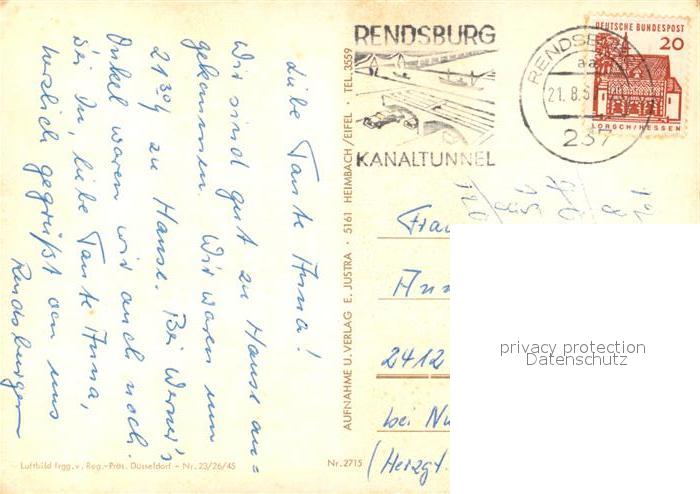 Liebe Tante Anna!
Wir sind gut zu Hause an=
gekommen. Wir waren um
21 30 zu Hause. Bei Werner's
Onkel waren wir auch noch.
Sei Du, liebe Tante Anna,
herzlich gegrüßt von uns
Rendsburgern
Luftbild frgg. v. Reg.-Präs. Düsseldorf - Nr. 23/26/45
Nr. 2715
AUFNAHME U. VERLAG E. JUSTRA · 5161 HEIMBACH/EIFEL · TEL. 3559
RENDSBURG
KANALTUNNEL
21.8.
237
DEUTSCHE BUNDESPOST
20
LORSCH/HESSEN
2412
bei
(Herzgt.
privacy protection
Datenschutz